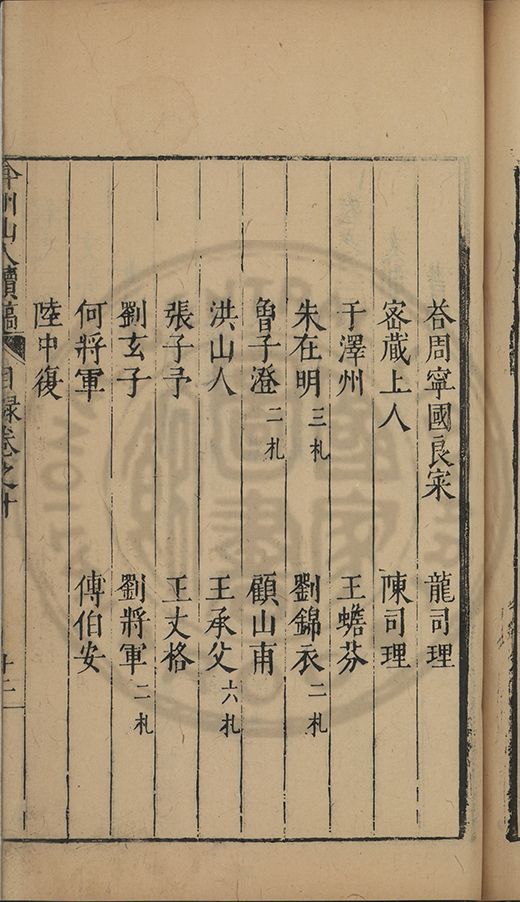 荅周寧國良寀 龍司理
密藏上人 陳司理
于澤州 王蟾芬
朱在明三札 劉錦衣二札
魯子澄二札 顧山甫
洪山人 王承父六札
張子予 王丈格
劉玄子 劉將軍二札
何將軍 傅伯安
陸中復
弇州山人續稿 目録卷之十